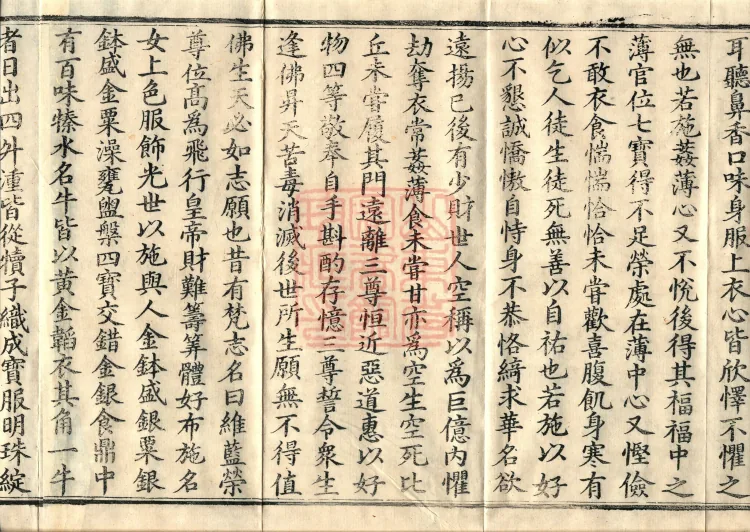 耳聽鼻香口味身服上衣心皆欣懌不懼之
無也若施姦薄心又不悅後得其福福中之
薄官位七寶得不足榮處在薄中心又慳儉
不敢衣食惴惴恰恰未嘗歡喜腹飢身寒有
似乞人徒生徒死無善以自祐也若施以好
心不懇誠憍慠自恃身不恭恪綺求華名欲
遠揚已後有少財世人空稱以為巨億內懼
劫奪衣常姦薄食未嘗甘亦為空生空死比
丘未嘗履其門遠離三尊恒近惡道惠以好
物四等敬奉自手斟酌存憶三尊誓令衆生
逢佛昇天苦毒消滅後世所生願無不得值
佛生天必如志願也昔有梵志名曰維藍榮
尊位髙為飛行皇帝財難籌筭體好布施名
女上色服飾光世以施與人金鉢盛銀粟銀
鉢盛金粟澡甕盥槃四寶交錯金銀食鼎中
有百味㯃水名牛皆以黃金韜衣其角一牛
者日出四升湩皆從犢子織成寶服明珠綻